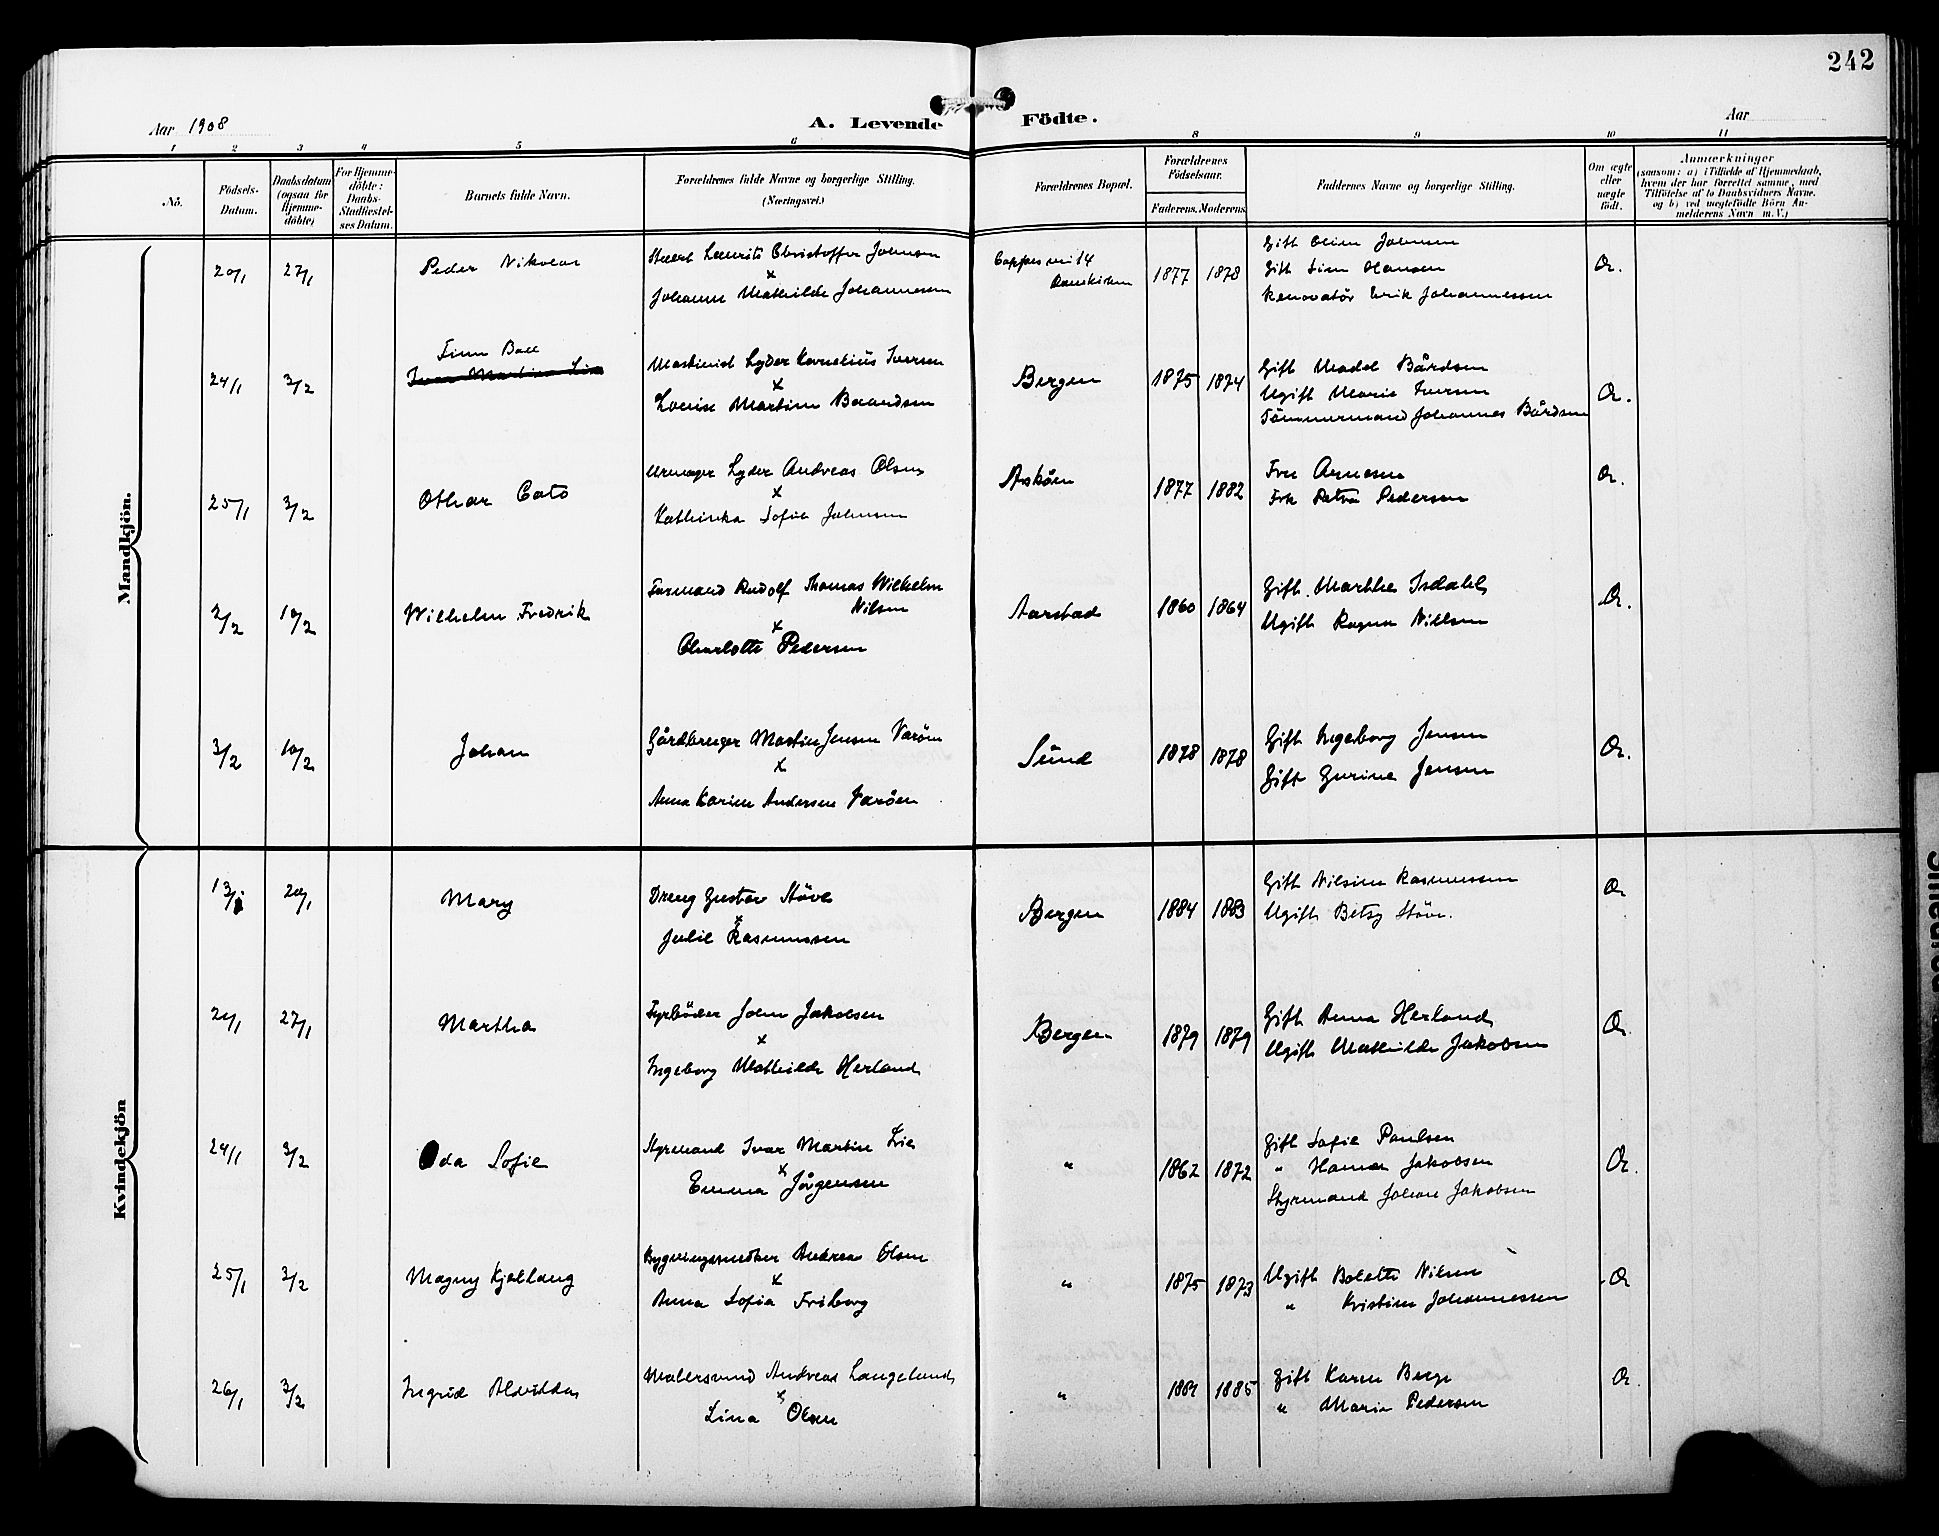 242
Aar 1908
A. Levende Födte.
Aar
1 2 3 4 5 6 8 9 10 11
No.
Födsels-Datum.
Daabsdatum (ogsaa for Hjemmedöbte)
For Hjemmedöbte: Daabs-Stadfæstelses Datum.
Barnets fulde Navn.
Forældrenes fulde Navne og borgerlige Stilling. (Næringsvei.)
Forældrenes Bopæl.
Forældrenes Födselsaar.
Faderens. Moderens.
Faddernes Navne og borgerlige Stilling.
Om ægte eller uægte födt.
Anmærkninger
(saasom: a) i Tilfælde af Hjemmedaab,
hvem der har forrettet samme, med
Tilföielse af to Daabsvidners Navne.
og b) ved uægtefödte Börn An-
melderens Navn m. V.)
Mandkjön.
20/1 27/1 Peder Nikolai
Laurits Christoffer Johnsen
x
Johanne Mathilde Johannessen
14
1877 1878
Gift Oline Johnsen
Gift Line Hansen
Renovatör Erik Johannessen
Æ.
24/1 3/2 Finn Ball
Ivar Martin Lie
Maskinist Lyder Kornelius Iversen
x
Lovise Martine Baardsen
Bergen 1875 1874
Gift Madel Bårdsen
Ugift Marie Iversen
Tömmermand Johannes Bårdsen
Æ.
25/1 3/2 Othar Cato
Urmager Lyder Andreas Olsen
x
Kathinka Sofie Johnsen
Asköen 1877 1882
Fru Arnesen
Frk Petra Pedersen
Æ.
2/2 10/2 Wilhelm Fredrik
Formand Rudolf Thomas Wilhelm
Nilsen
x
Charlotte Pedersen
Aarstad 1860 1864
Gift Marthe Isdahl
Ugift Ragna Nilsen
Æ.
3/2 10/2 Johan
Gårdbruger Martin Jensen Varöen
x
Anna Karine Andersen Varöen
Sund 1878 1878
Gift Ingeborg Jensen
Gift Gurine Jensen
Æ.
Kvindekjön
13/1 20/1 Mary
Dreng Gustav Stöve
x
Julie Rasmussen
Bergen 1884 1883
Gift Nilsine Rasmussen
Ugift Betsy Stöve.
Æ
21/1 27/1 Martha
Fyrböder John Jakobsen
x
Ingeborg Mathilde Herland
Bergen 1879 1879
Gift Anna Herland
Ugift Mathilde Jakobsen
Æ.
24/1 3/2 Oda Sofie
Styrmand Ivar Martin Lie
x
Emma Jörgensen
" 1862 1872
Gift Sofie Paulsen
" Hanna Jakobsen
Styrmand Johan Jakobsen
Æ.
25/1 3/2 Magny Kjellaug
Bygningssnedker Andreas Olsen
x
Anna Sofia Friborg
" 1875 1873
Ugift Bolette Nilsen
" Kristine Johannessen
Æ
26/1 3/2 Ingrid Alvilda
Malersvend Andreas Langeland
x
Lina Olsen
" 1885
Gift Karen Berge
" Marie Pedersen
Æ